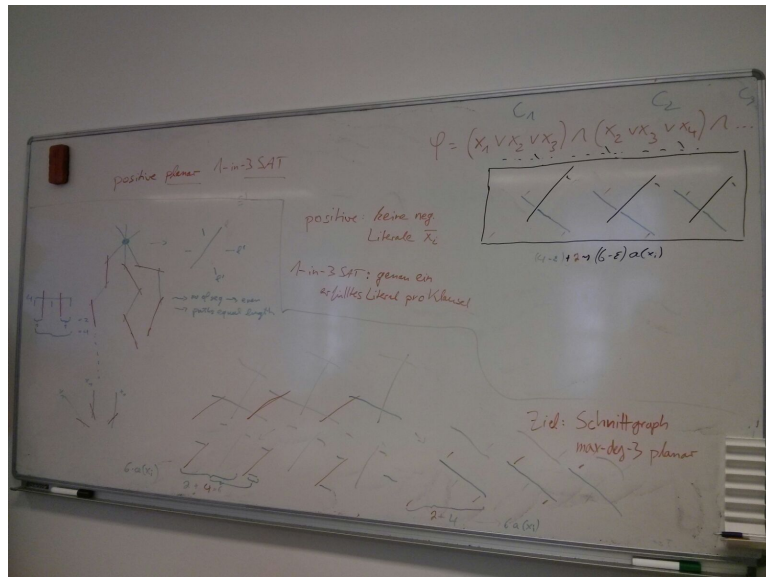 C1 C2 C3
φ = (x1 ∨ x2 ∨ x3) ∧ (x2 ∨ x3 ∨ x4) ∧ ...
positive planar 1-in-3 SAT
positive: keine neg
Literale x̄i
1-in-3 SAT: genau ein
erfülltes Literal pro Klausel
(6-ε) a(xi)
→ paths equal length
Ziel: Schnittgraph
max-deg-3 planar
6·a(xi)
2+4-ε
2-4
6a(xi)